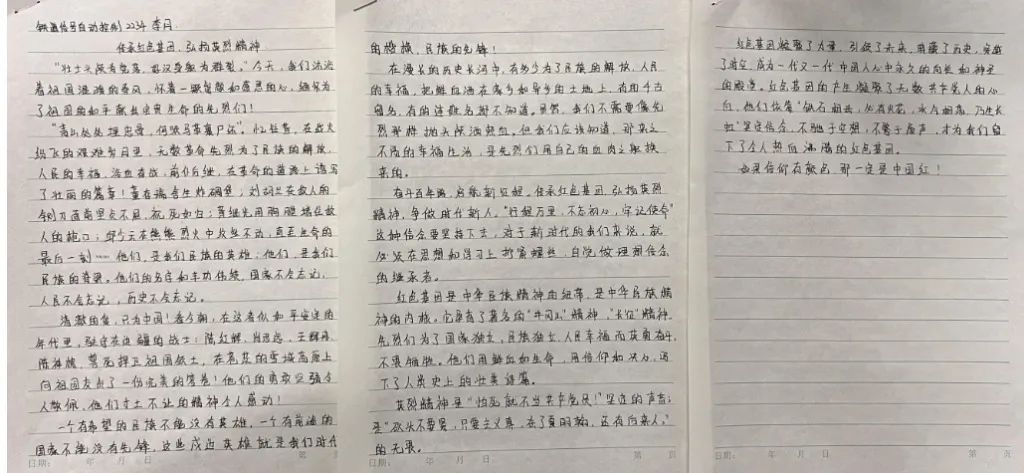 铁道信号自动控制2234 李月
传承红色基因,弘扬英烈精神
"壮士头颅为党落,好汉身躯为群裂。"今天,我们沐浴
着祖国温暖的春风,怀着一颗
了祖国的和平献出宝贵生命的先烈们!
"青山处处埋忠骨,何须马革裹尸还"。忆往昔,在战火
纷飞的艰难岁月里,无数革命先烈为了民族的解放,
人民的幸福,浴血奋战,前仆后继,在革命的道路上谱写
了壮丽的篇章!董存瑞舍生炸碉堡;刘胡兰在敌人的
铡刀面前坚贞不屈,视死如归;黄继光用胸膛堵住敌
人的枪口;邱少云在熊熊烈火中纹丝不动,直至生命的
最后一刻……他们,是我们民族的英雄;他们,是我们
民族的脊梁。他们的名字和丰功伟绩,国家不会忘记,
人民不会忘记,历史不会忘记。
清澈的爱,只为中国!看今朝,在这看似和平安定的
年代里,驻守在边疆的战士:陈红军、肖思远、王焯冉、
陈祥榕,誓死捍卫祖国领土,在苍茫的雪域高原上
向祖国交出了一份完美的答卷!他们的勇敢坚强令
人敬佩,他们寸土不让的精神令人感动!
一个有希望的民族不能没有英雄,一个有前途的
国家不能没有先锋,这些戍边英雄就是我们时代
日期: 年 月 日 第 页
的楷模,民族的先锋!
在漫长的历史长河中,有多少为了民族的解放,人民
的幸福,把鲜血洒在异乡如异乡的土地上,有的千古
留名,有的连姓名都不知道。虽然,我们不需要像先
烈那样抛头颅洒热血。但我们应该知道,那来之
不易的幸福生活,是先烈们用自己的血肉之躯换
来的。
奋斗百年路,启航新征程。传承红色基因,弘扬英烈
精神,争做时代新人。"行程万里,不忘初心,牢记使命"
这种信念要坚持下去,对于新时代的我们来说,就
必须在思想和学习上拧紧螺丝,自觉做理想信念
的继承者。
红色基因是中华民族精神的纽带,是中华民族精
神的内核。它孕育了著名的"井冈山"精神,"长征"精神,
先烈们为了国家独立,民族独立,人民幸福而英勇奋斗,
不畏牺牲。他们用鲜血和生命,用信仰和决心,谱
下了人类史上的壮美诗篇。
英烈精神是"怕死就不当共产党员!"坚定的声音;
是"砍头不要紧,只要主义真,杀了夏明翰,还有后来人。"
的无畏。
日期: 年 月 日 第 页
红色基因凝聚了力量,引领了未来,
了时空,成为一代又一代中国人心中永久的向往和神圣
的殿堂。红色基因的产生凝聚了无数共产党人的心
血,他们依靠"钻石相击,必有火花,水气相荡,乃生长
虹"坚定信念,不驰于空想,不骛于虚声,才为我们留
下了令人热血沸腾的红色基因。
如果信仰有颜色,那一定是中国红!
日期: 年 月 日 第 页